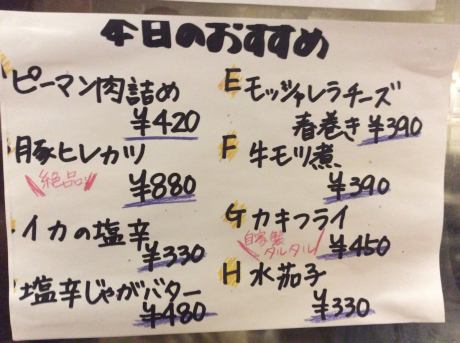 今日のおすすめ
ピーマン肉詰め
¥420
豚ヒレカツ
絶品!!
¥880
イカの塩辛
¥330
塩辛じゃがバター
¥480
E モッツァレラチーズ
春巻き ¥390
F 牛モツ煮
¥390
G カキフライ
自家製
タルタル
¥450
H 水茄子
¥330